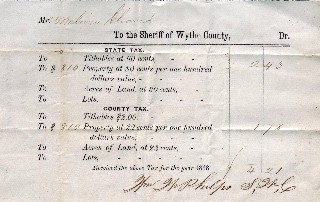 Mr.
To the Sheriff of Wythe County, Dr.
STATE TAX.
To Tithables at 60 cents - -
To $ 810 Property at 30 cents per one hundred 2 43
dollars value, - -
To Acres of Land, at cents, -
To Lots, - - -
COUNTY TAX.
To Tithables $2.00. - -
To $ 810 Property at 22 cents per one hundred 1 78
dollars value,
To Acres of Land, at 22 cents, -
To Lots, - - -
Received the above Tax for the year 1868 4 21
Wm H Phelps S. W. C